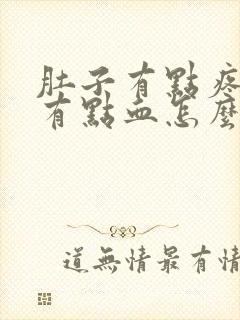 肚子有點疼
有點血怎麼
道無情最有情